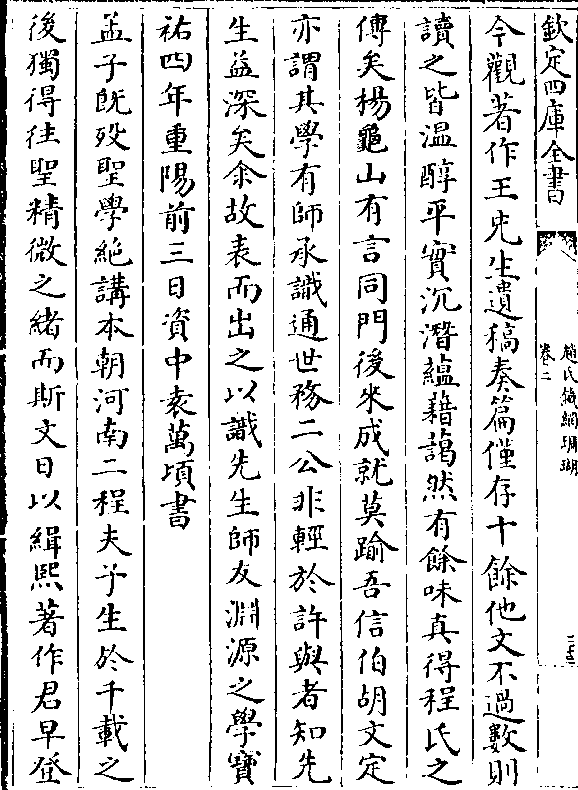 欽定四庫全書
趙氏鐵網珊瑚
卷二
今觀著作王先生遺稿奏篇僅存十餘他文不過數則
讀之皆溫醇平實沉潛蘊藉藹然有餘味真得程氏之
傳矣楊龜山有言同門後來成就莫踰吾信伯胡文定
亦謂其學有師承識通世務二公非輕於許與者知先
生益深矣余故表而出之以識先生師友淵源之學寶
祐四年重陽前三日資中袁萬頃書
孟子旣殁聖學絶講本朝河南二程夫子生於千載之
後獨得徃聖精微之緒而斯文日以緝熙著作君早登